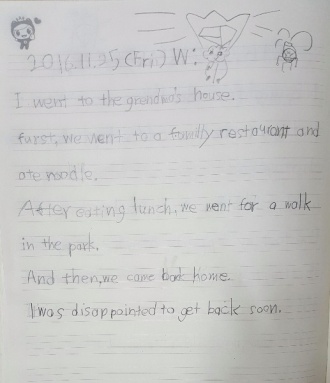 2016.11.25(Fri.) W:
I went to the grandma's house.
furst, we went to a family restaurant and
ate noodle.
After eating lunch, we went for a walk
in the park.
And then, we came back home.
I was disappointed to get back soon.